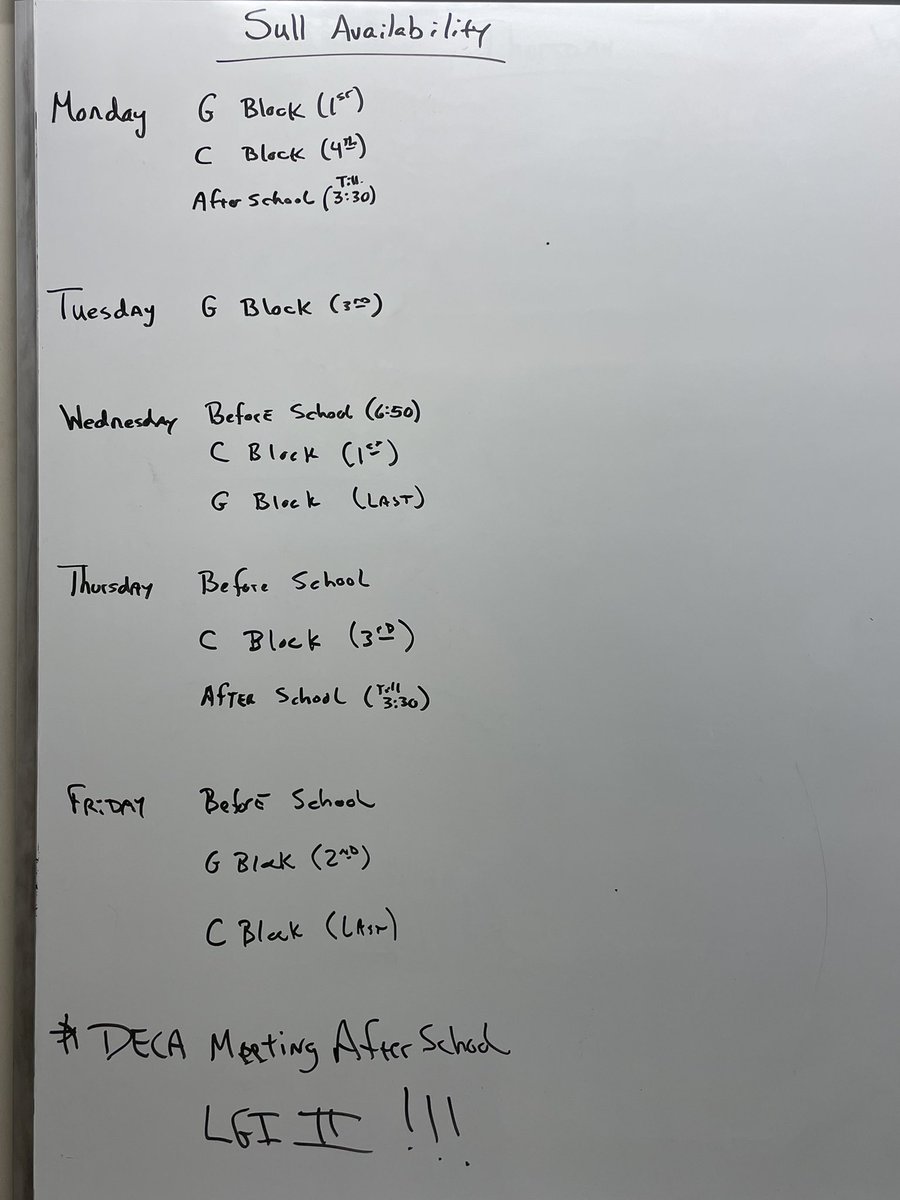 Sull Availability
Monday G Block (1st)
C Block (4th)
After School (Till 3:30)
Tuesday G Block (3rd)
Wednesday Before School (6:50)
C Block (1st)
G Block (LAST)
Thursday Before School
C Block (3rd)
After School (Till 3:30)
FRiDAY Before School
G Block (2ND)
C Block (LAST)
* DECA Meeting After School
LGI II !!!